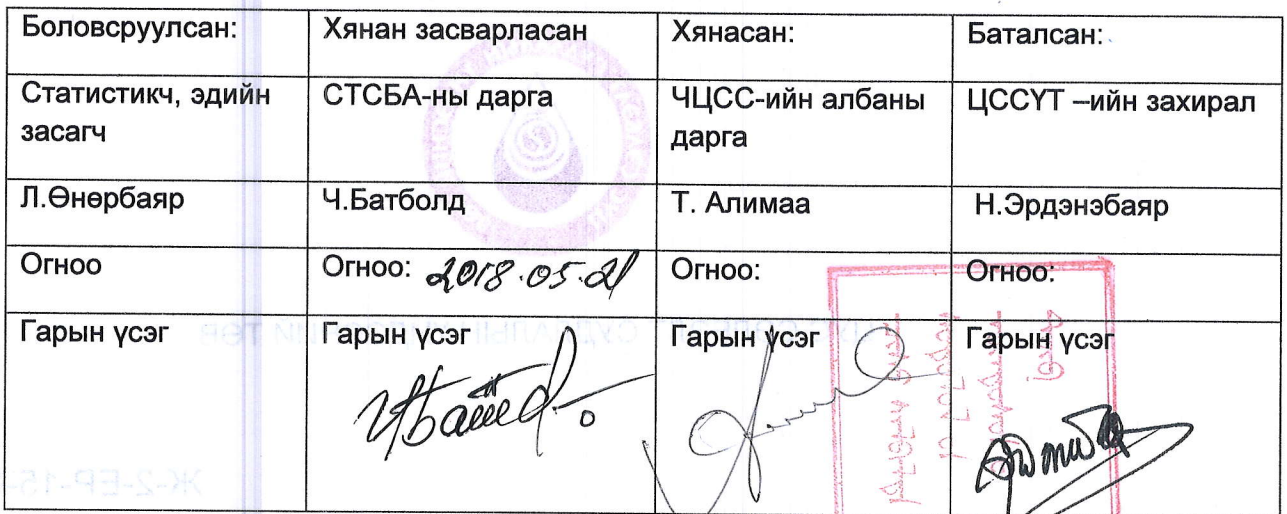 Боловсруулсан: Хянан засварласан Хянасан: Баталсан:
Статистикч, эдийн засагч СТСБА-ны дарга ЧЦСС-ийн албаны дарга ЦССҮТ –ийн захирал
Л.Өнөрбаяр Ч.Батболд Т. Алимаа Н.Эрдэнэбаяр
Огноо Огноо: 2018.05.21 Огноо: Огноо:
Гарын үсэг Гарын үсэг Гарын үсэг Гарын үсэг